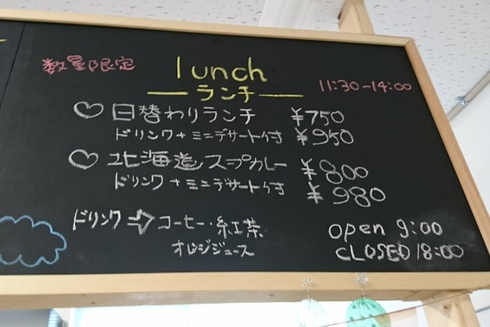 数量限定
lunch
ランチ
11:30-14:00
♡日替わりランチ ¥750
ドリンク+ミニデザート付 ¥950
♡北海道スープカレー ¥800
ドリンク+ミニデザート付 ¥980
ドリンク⇒コーヒー・紅茶
オレンジジュース
open 9:00
CLOSED 18:00